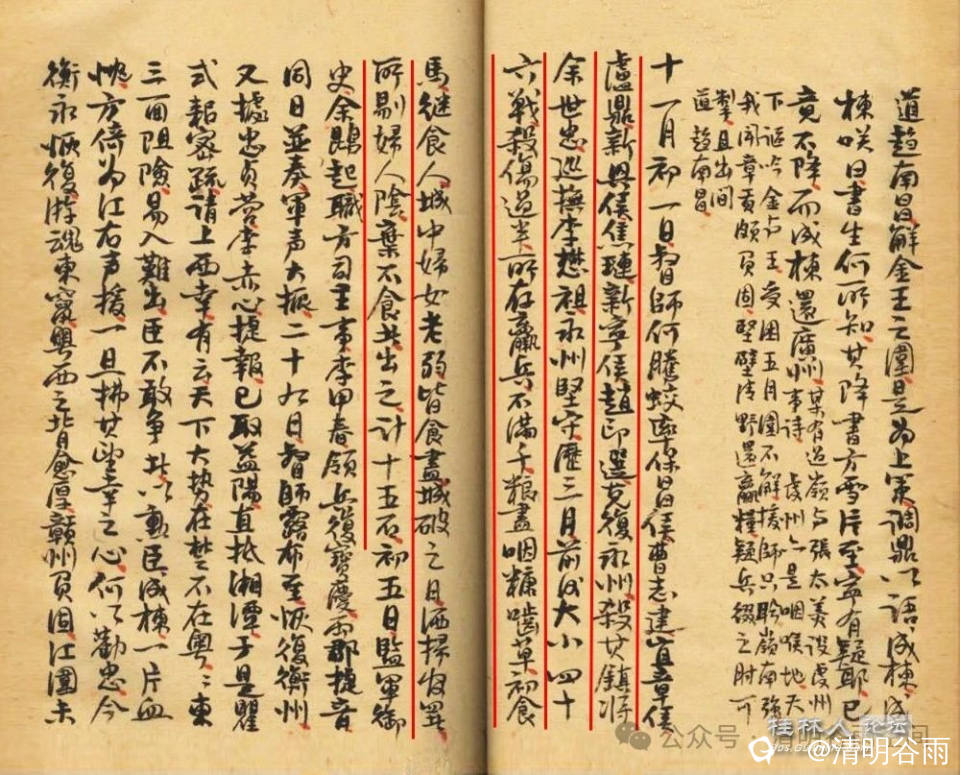 道趙南昌解金王之圍是為上策調鼎以語成棟成
棟咲曰書生何所知其降書方雪片至寧有疑耶已
竟不降而成棟還廣州
事詩
虔州六是咽喉地天
下謳吟金與王受困五月圍不解援師只聆嶺南強
我聞章貢頗負固堅壁清野還羸糧疑兵綴之肘可
掣且出間
道趙南昌
十一月初一日督師何騰蛟率保昌侯曹志建宜章侯
盧鼎新興侯焦璉新寧侯趙印選克復永州殺其鎮將
余世忠巡撫李懋祖永州堅守歷三月前後大小四十
六戰殺傷過半所存羸兵不滿千粮盡咽糠嚙草初食
馬継食人城中婦女老弱皆食盡城破之日洒掃收
所剮婦人陰棄不食共出之計十五石初五日監軍御
史余鵾起職方司主事李甲春領兵復寶慶兩郡捷音
同日並奏軍声大振二十九日督師露布至恢復衡州
又據忠貞營李赤心捷報已取益陽直抵湘潭于是瞿
式耜密疏請上西幸有云天下大势在楚不在粵粵東
三面阻險易入難出臣不敢争其以勳臣成棟一片血
忱方倚为江右声援一旦拂其望幸之心何以勸忠今
衡永恢復游魂東竄粵西之背愈厚贛州負固江圍未
桂林人论坛
公众号·清明谷雨空间
@清明谷雨